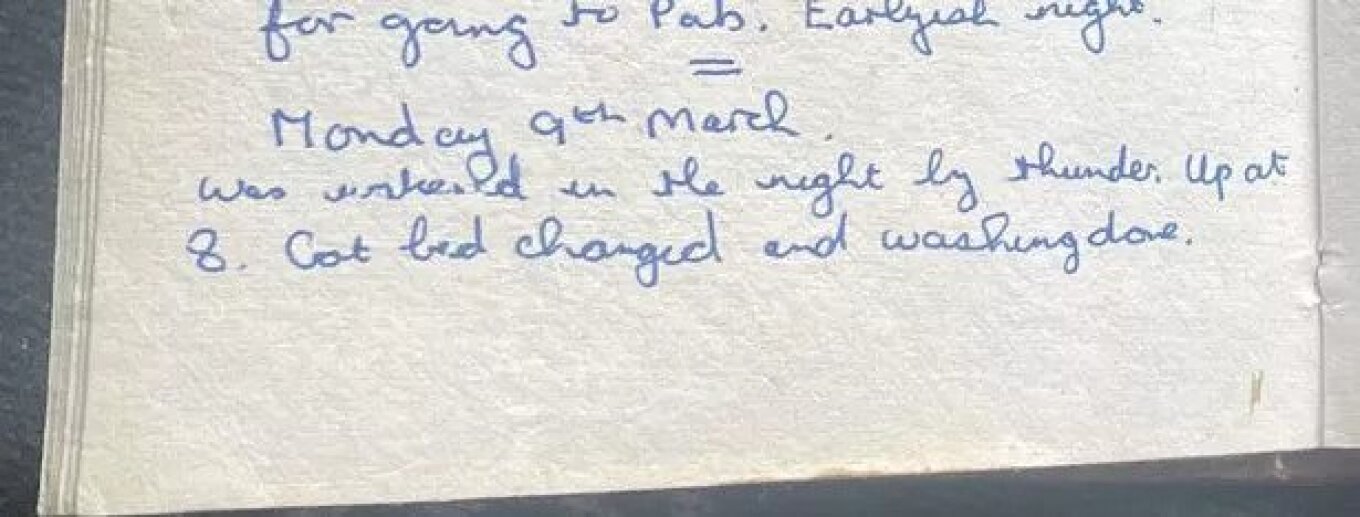 for going to Pab. Earlyish night.
Monday 9th March.
Was wakened in the night by thunder. Up at
8. Got bed changed and washing done.